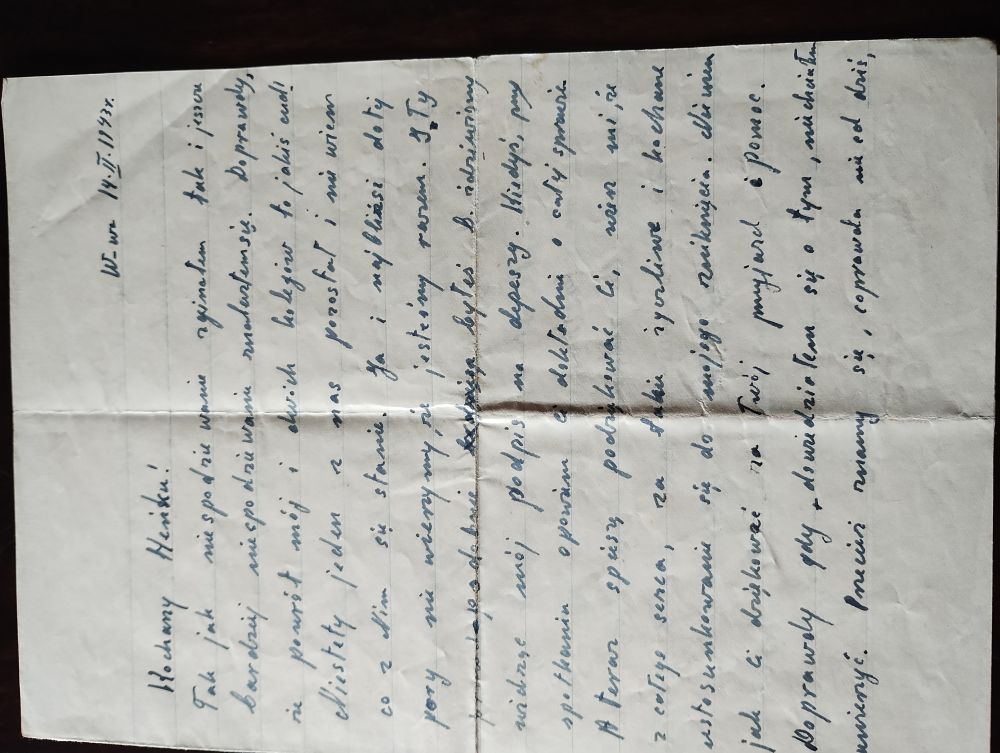 W-wa 14.II.1943r.
Kochany Heńku!
Tak jak niespodziewanie zginąłem tak i jeszcze
bardziej niespodziewanie znalazłem się. Doprawdy,
że powrót mój i dwóch kolegów to jakiś cud!
Niestety jeden z nas pozostał i nie wiem
co z Nim się stanie. Ja i najbliżsi do tej
pory nie wierzymy, że jesteśmy razem. I Ty
byłeś b. zdziwiony
widząc mój podpis na depeszy. Kiedyś, przy
spotkaniu opowiem ci dokładnie o całej sprawie
A teraz spieszę podziękować Ci, wierz mi, że
z całego serca, za takie życzliwe i kochane
ustosunkowanie się do mojego zniknięcia. Nie wiem
jak Ci dziękować za Twój przyjazd i pomoc.
Doprawdy gdy dowiedziałem się o tym, nie chciałem
uwierzyć. Przecież znamy się, coprawda nie od dziś,